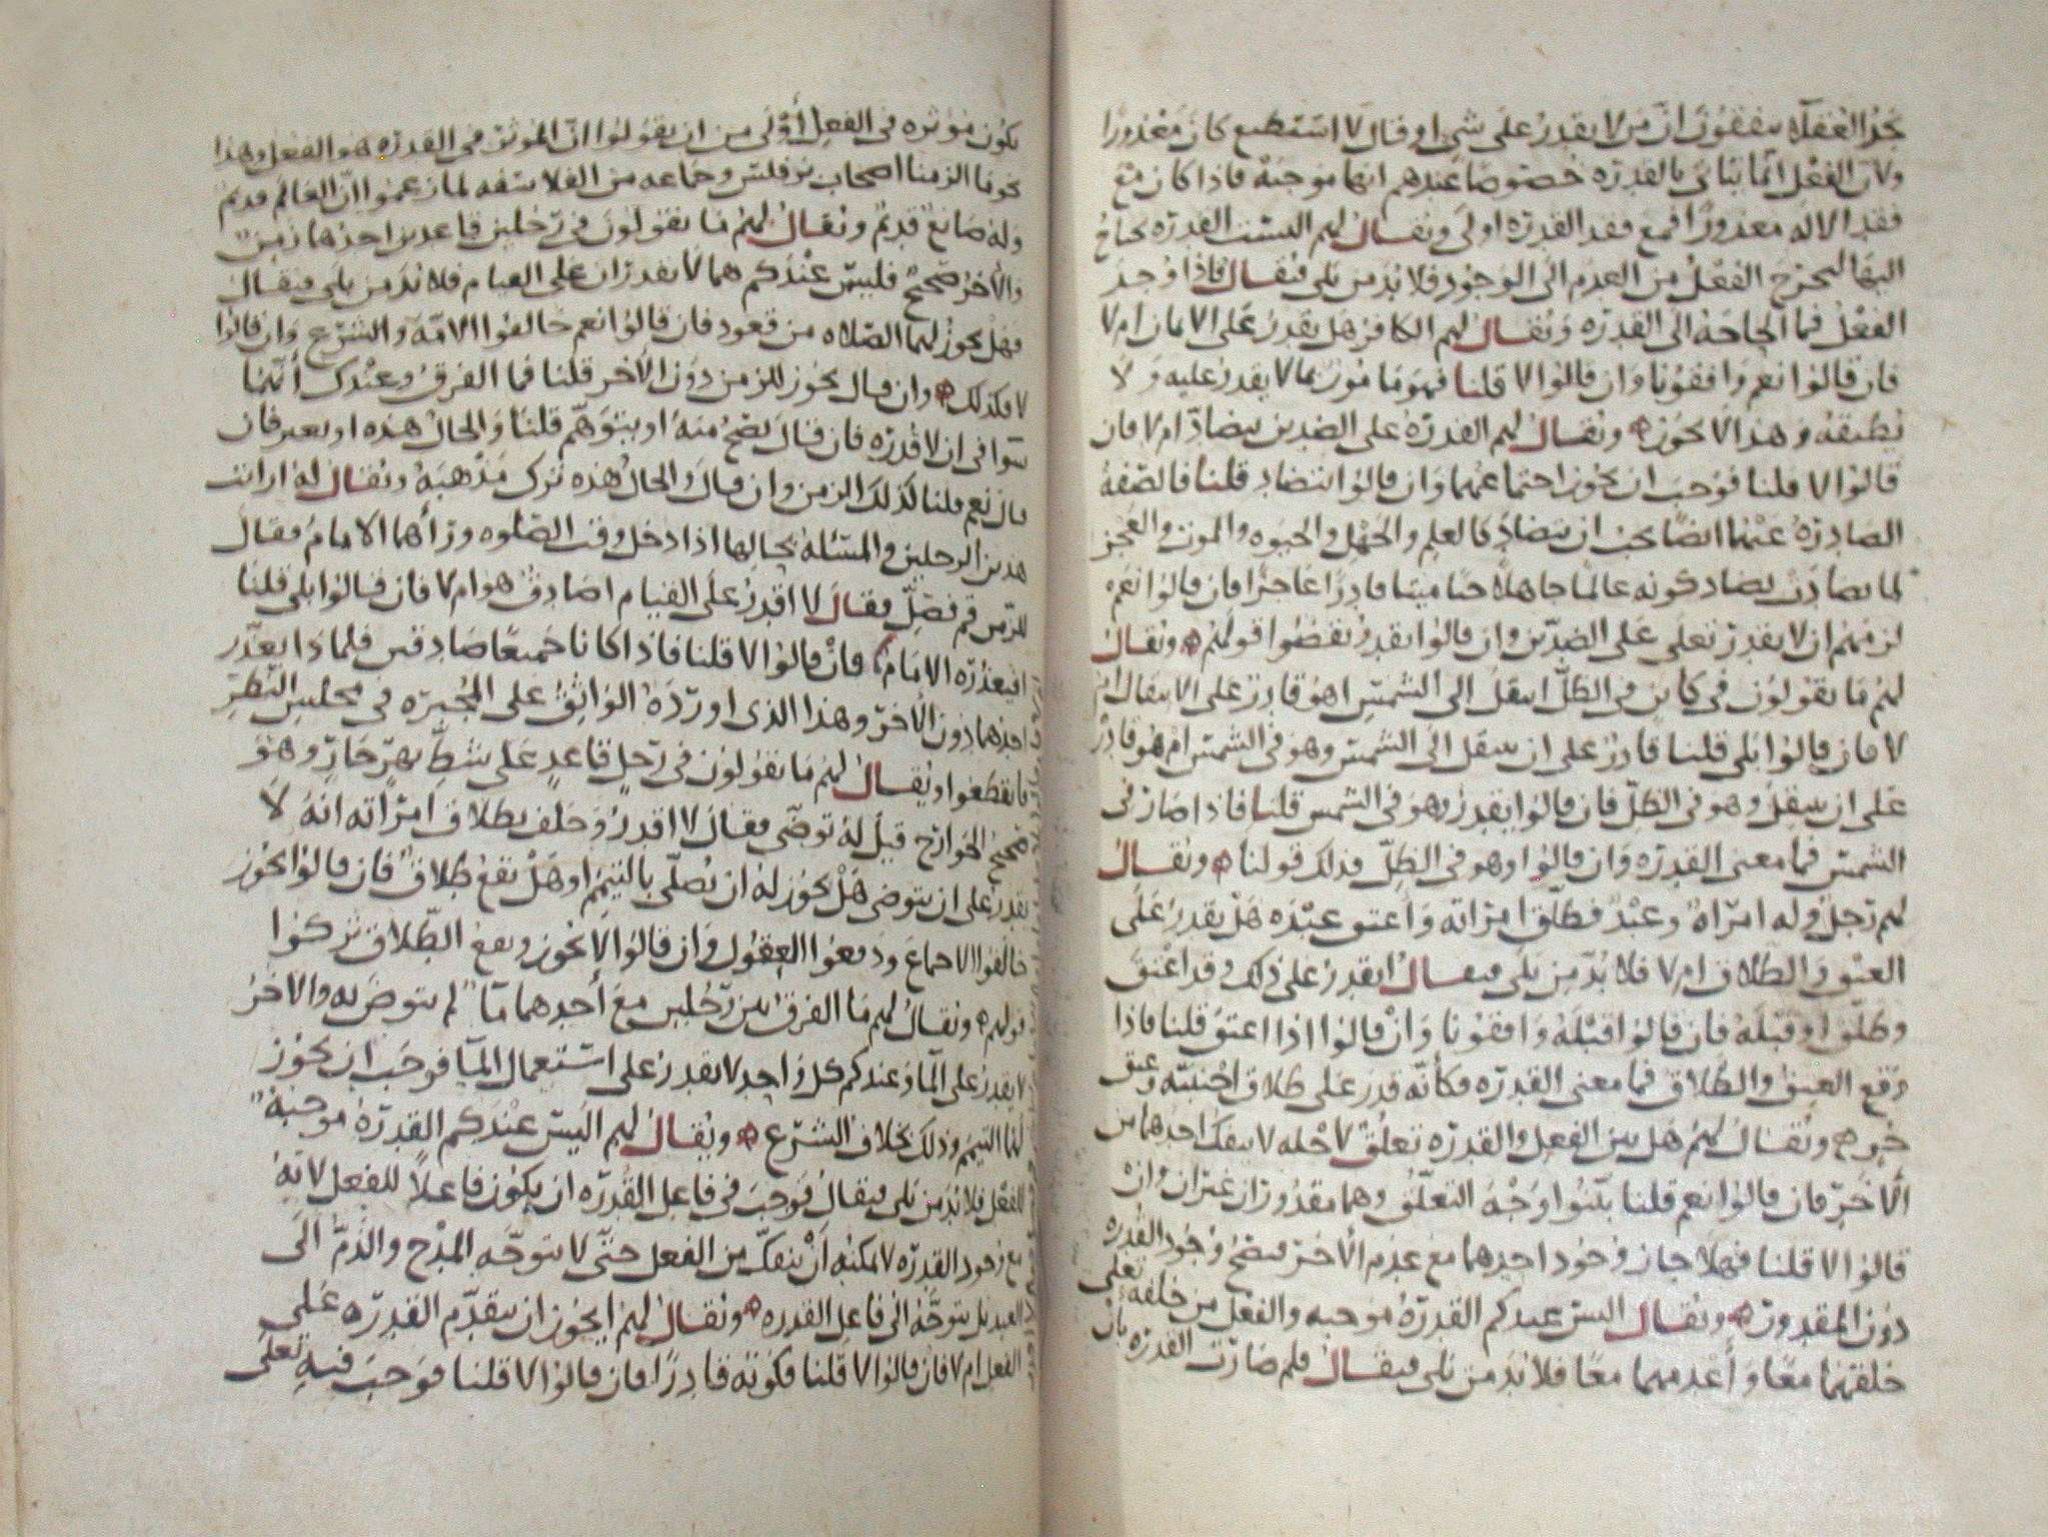 نجد العقلآء يتفقون ان من لا يقدر على شي او قال لا استطيع كان معذورا
ولان الفعل انما يتاتى بالقدره خصوصا عندهم انها موجبة فاذا كان مع
فقد الاله معذورا فمع فقد القدره اولى ويقال لهم اليست القدره يحتاج
اليها ليخرج الفعل من العدم الى الوجود فلا بد من بلى فيقال فاذا وجد
الفعل فما الحاجة الى القدره ويقال لهم الكافر هل يقدر على الايمان ام لا
فان قالوا نعم وافقونا وان قالوا لا قلنا فهو مامور بما لا يقدر عليه ولا
يطيقه وهذا لا يجوز ويقال لهم القدرة على الضدين يتضاد ام لا فان
قالوا لا قلنا فوجب ان يجوز اجتماعهما وان قالوا تتضاد قلنا فالصفة
الصادرة عنهما ايضا يجب ان يتضاد كالعلم والجهل والحيوه والموت والعجز
لما تضادت تضاد كونه عالما جاهلا حيا ميتا قادرا عاجزا فان قالوا نعم
لزمهم ان لا يقدر تعلى على الضدين وان قالوا يقدر نقضوا قولهم ويقال
لهم ما تقولون في كاين في الظل انتقل الى الشمس اهو قادر على الانتقال ام
لا فان قالوا بلى قلنا قادر على ان ينتقل الى الشمس وهو في الشمس ام هو قادر
على ان ينتقل وهو في الظل فان قالوا يقدر وهو في الشمس قلنا فاذا صار في
الشمس فما معنى القدره وان قالوا وهو في الظل فذلك قولنا ويقال
لهم رجل وله امراة وعبد فطلق امراته واعتق عبده هل يقدر على
العتق والطلاق ام لا فلا بد من بلى فيقال ايقدر على ذلك وقد اعتق
وطلق او قبله فان قالوا قبله وافقونا وان قالوا اذا اعتق قلنا فاذا
وقع العتق والطلاق فما معنى القدره فكأنه قدر على طلاق اجنبيه وعتق
حر ويقال لهم هل بين الفعل والقدره تعلق لاجله لا ينفك احدهما من
الآخر فان قالوا نعم قلنا بينوا وجه التعلق وهما مقدوران غيران وان
قالوا لا قلنا فهلا جاز وجود احدهما مع عدم الآخر فيصح وجود القدره
دون المقدور ويقال اليس عندكم القدرة موجبه والفعل من خلقه تعلى
خلقهما معا وأعدمهما معا فلا بد من بلى فيقال فلم صارت القدره بان
تكون مؤثره في الفعل أولى من ان يقولوا ان الموثر في القدره هو الفعل وهذا
نحو ما الزمنا اصحاب برقلس وجماعه من الفلاسفه لما زعموا ان العالم قديم
وله صانع قديم ويقال لهم ما تقولون في رجلين قاعدين احدهما زمن
والآخر صحيح فليس عندكم هما لا يقدران على القيام فلا بد من بلى فيقال
فهل يجوز لهما الصلاه من قعود فان قالوا نعم خالفوا الامه والشرع وان قالوا
لا فكذلك وان قال يجوز للزمن دون الآخر قلنا فما الفرق وعندك أنهما
سوا في ان لا قدره فان قال يصح منه او يتوهم قلنا والحال هذه او بغير فان
قال نعم قلنا كذلك الزمن وان قال والحال هذه ترك مذهبه ويقال له ارايت
هذين الرجلين والمسئلة بحالها اذا دخل وقت الصلوه ورأهما الامام فقال
للزمن قم فصل فقال لا اقدر على القيام اصادق هو ام لا فان قالوا بلى قلنا
افيعذره الامام فان قالوا لا قلنا فاذا كانا جميعا صادقين فلماذا يعذر
احدهما دون الآخر وهذا الذي اورده الواثق على المجبره في مجلس النظر
فانقطعوا ويقال لهم ما تقولون في رجل قاعد على شط نهر جار وهو
صحيح الجوارح قيل له توضى فقال لا اقدر وحلف بطلاق امراته انه لا
يقدر على ان يتوضى هل يجوز له ان يصلى بالتيمم او هل يقع طلاق فان قالوا يجوز
خالفوا الاجماع ودفعوا العقول وان قالوا لا يجوز ويقع الطلاق تركوا
قولهم ويقال لهم ما الفرق بين رجلين مع أحدهما مآ لم يتوض به والاخر
لا يقدر على المآ وعندكم كل واحد لا يقدر على استعمال المآ فوجب ان يجوز
لهما التيمم وذلك بخلاف الشرع ويقال لهم اليس عندكم القدرة موجبة
للفعل فلا بد من بلى فيقال فوجب في فاعل القدره ان يكون فاعلا للفعل لانه
مع وجود القدره لا يمكنه أن ينفك من الفعل حتى لا يتوجه المدح والذم الى
العبد بل يتوجه الى فاعل القدره ويقال لهم ايجوز ان يتقدم القدره على
الفعل ام لا فان قالوا لا قلنا فكونه قادرا فان قالوا لا قلنا فوجب فيه تعلى